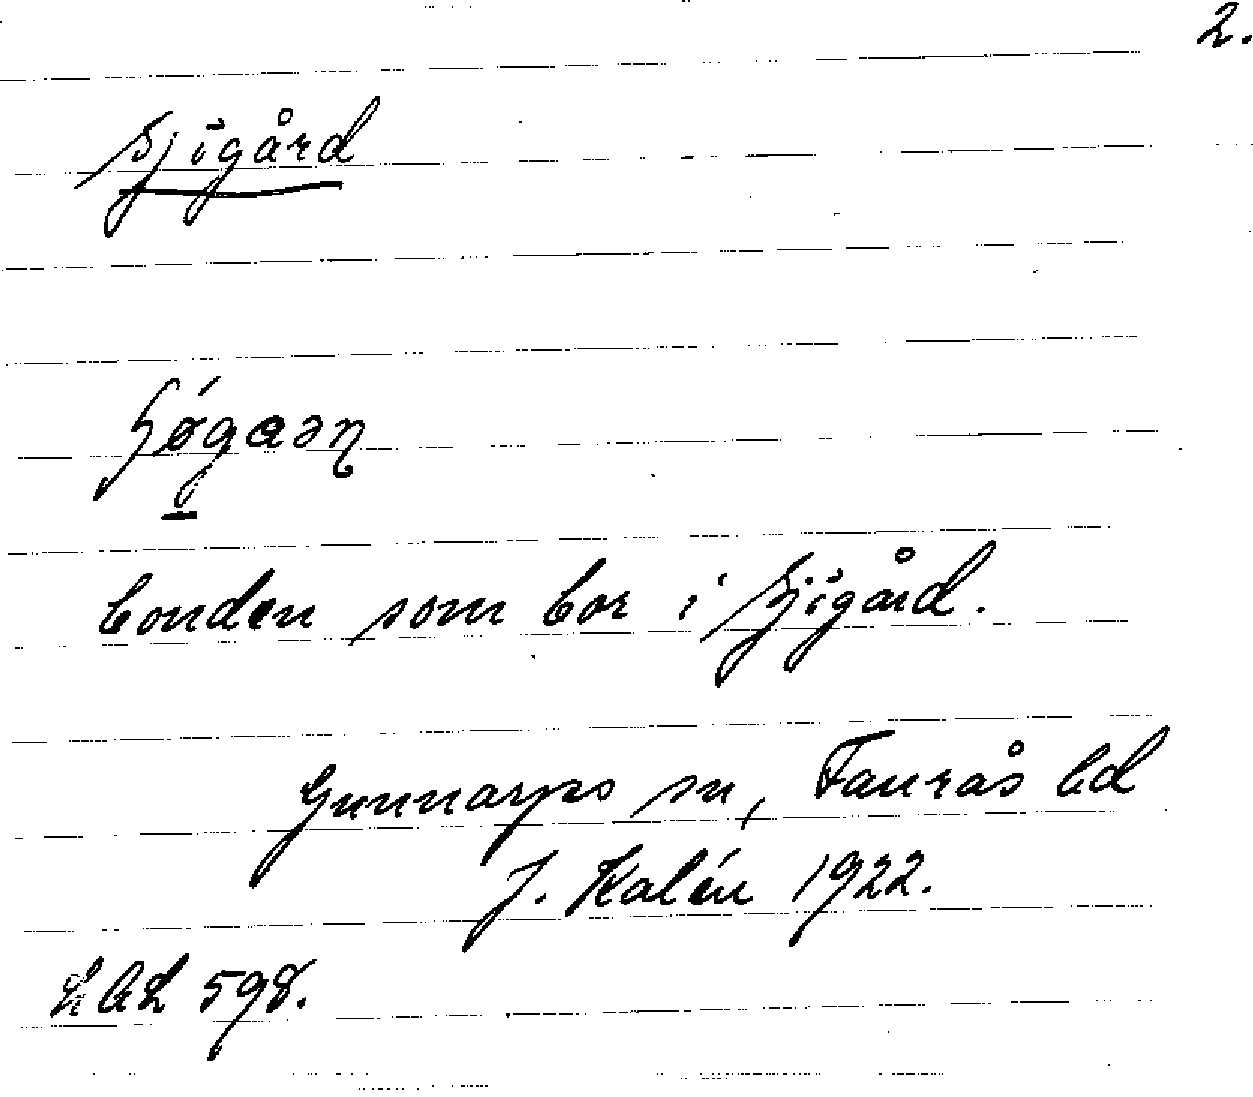 2.
Sjögård
bonden som bor i Sjögård.
Gunnarps sn, Faurås hd
J. Kalén 1922.
598.